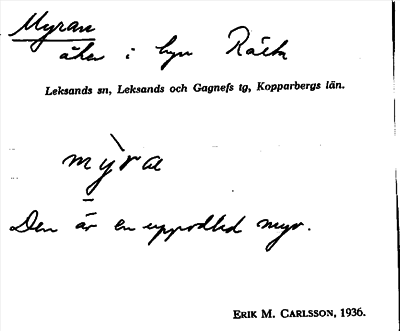 Myran
åker i byn Rälta
Leksands sn, Leksands och Gagnefs tg, Kopparbergs län.
mỳra
Den är en uppodlad myr.
ERIK M. CARLSSON, 1936.